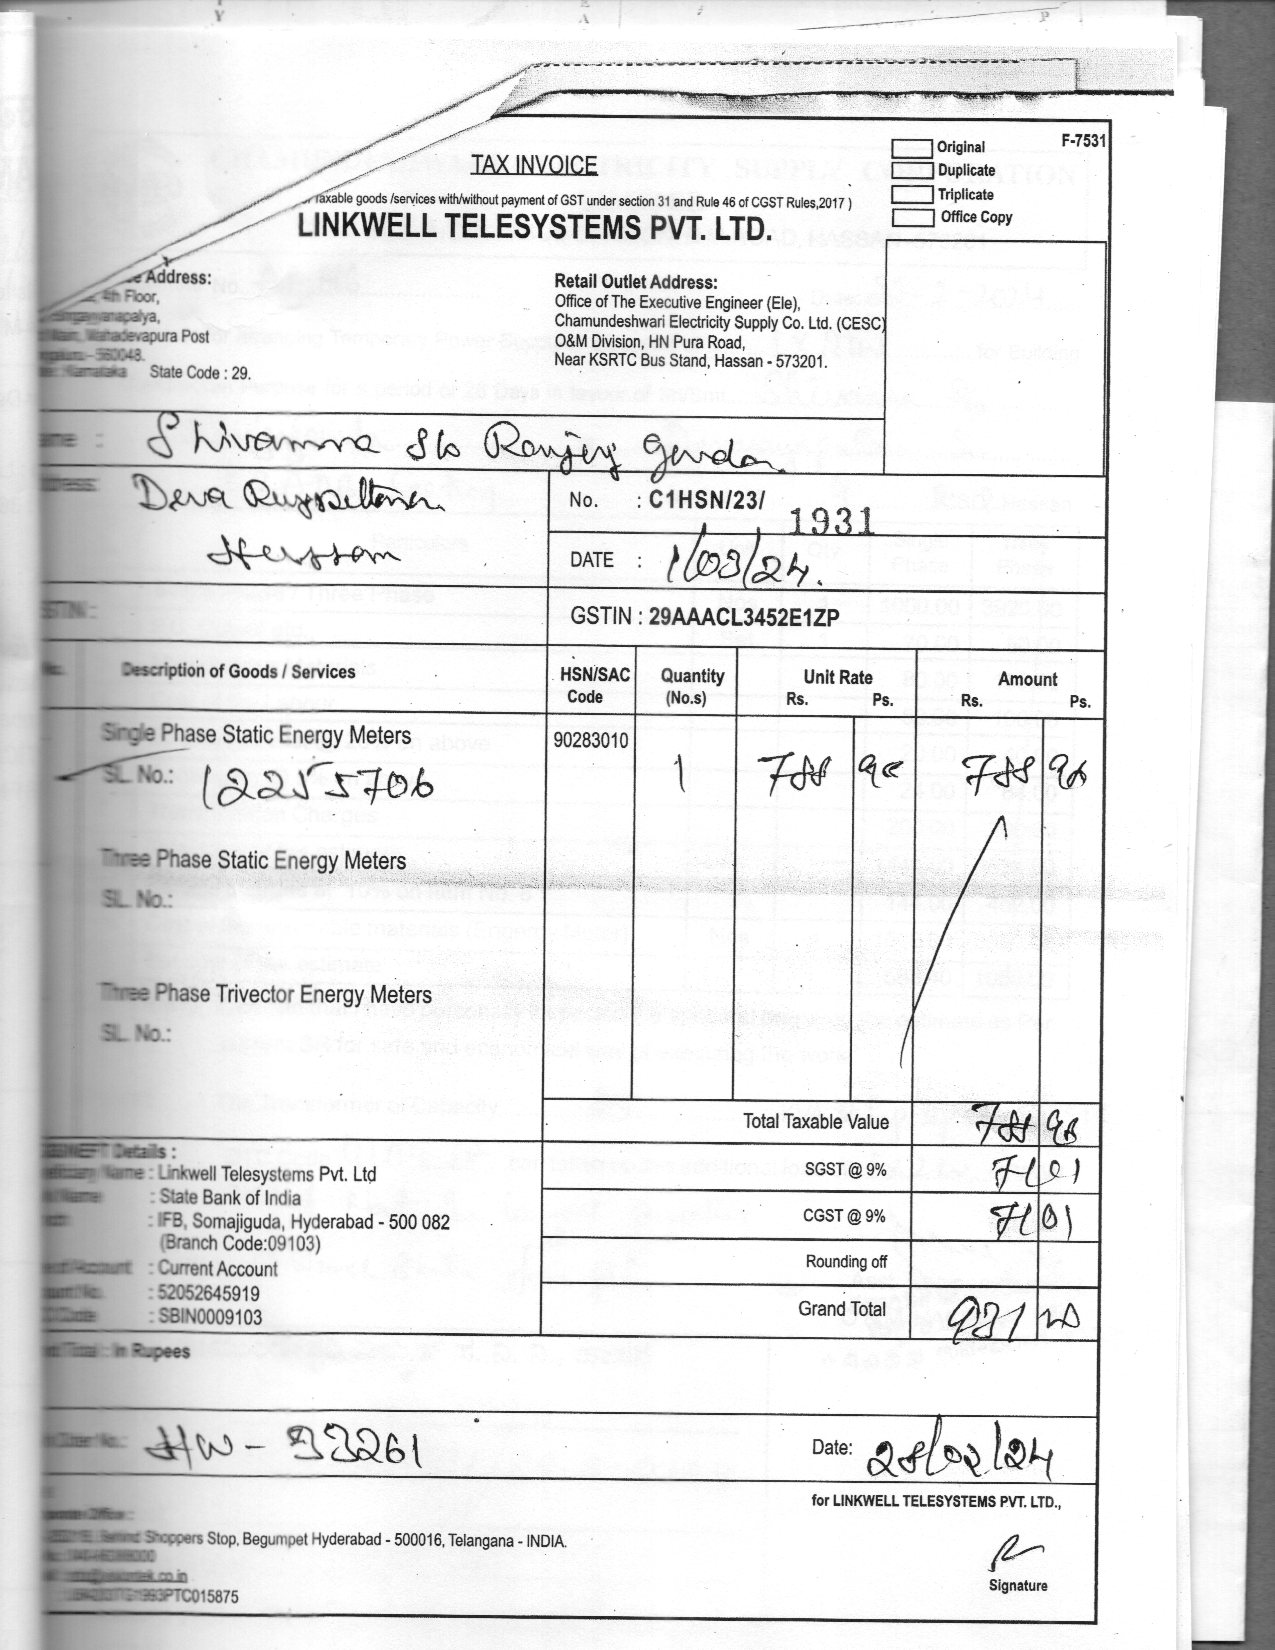 F-7531
Original
Duplicate
Triplicate
Office Copy
TAX INVOICE
taxable goods /services with/without payment of GST under section 31 and Rule 46 of CGST Rules,2017 )
LINKWELL TELESYSTEMS PVT. LTD.
Address:
4th Floor,
Mahadevapura Post
560048.
Karnataka State Code : 29.
Retail Outlet Address:
Office of The Executive Engineer (Ele),
Chamundeshwari Electricity Supply Co. Ltd. (CESC)
O&M Division, HN Pura Road,
Near KSRTC Bus Stand, Hassan - 573201.
Shivamma S/o
Hassan
No. : C1HSN/23/ 1931
DATE : 1/03/24.
GSTIN : 29AAACL3452E1ZP
Description of Goods / Services HSN/SAC Code Quantity (No.s) Unit Rate Rs. Ps. Amount Rs. Ps.
Single Phase Static Energy Meters 90283010 1 788 98 788 98
SL. No.: 12255706
Three Phase Static Energy Meters
SL. No.:
Three Phase Trivector Energy Meters
SL. No.:
Total Taxable Value 788 98
SGST @ 9% 71 01
CGST @ 9% 71 01
Rounding off
Grand Total 931
Details :
Name : Linkwell Telesystems Pvt. Ltd
Name : State Bank of India
: IFB, Somajiguda, Hyderabad - 500 082
(Branch Code:09103)
Account : Current Account
: 52052645919
: SBIN0009103
Total : In Rupees
HW - 33261
Date: 28/02/24
for LINKWELL TELESYSTEMS PVT. LTD.,
Shoppers Stop, Begumpet Hyderabad - 500016, Telangana - INDIA.
Signature
1993PTC015875